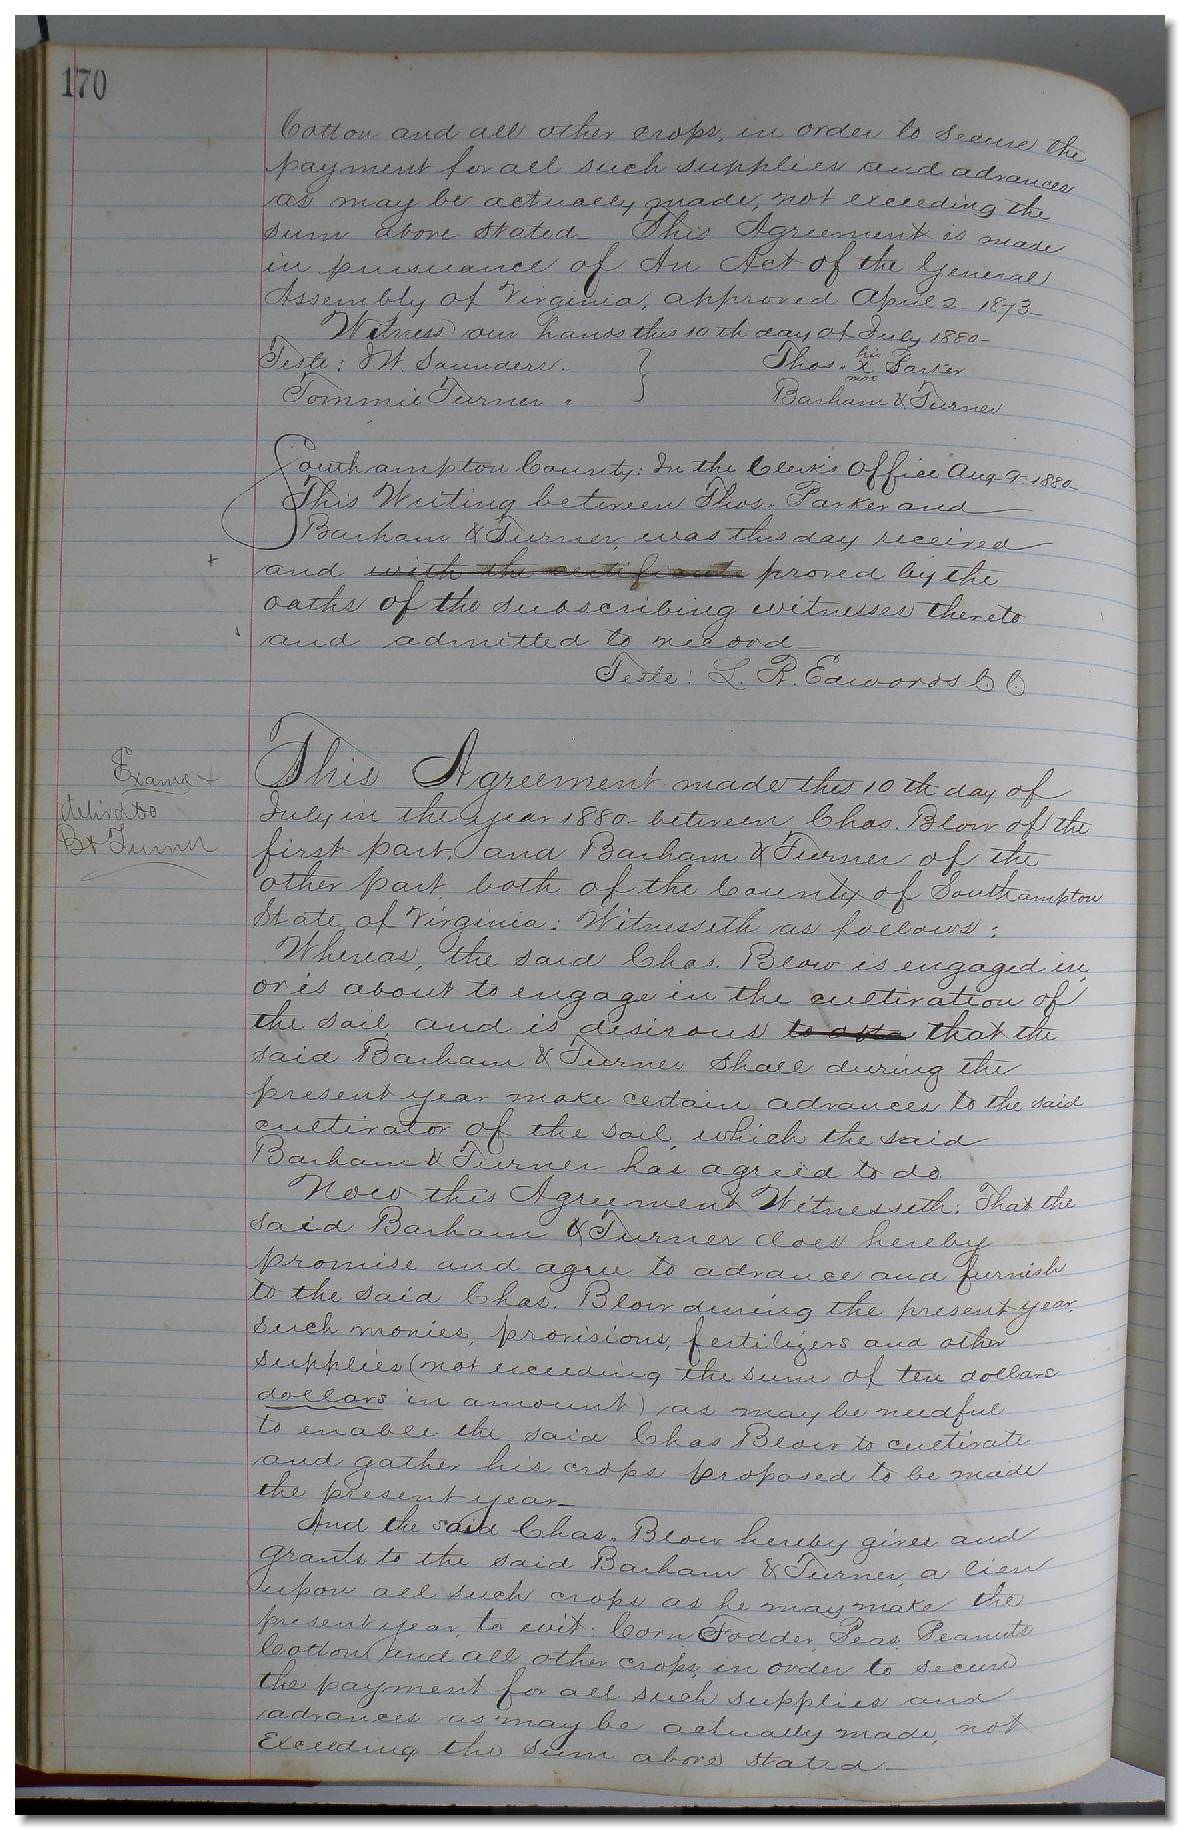 170
Cotton and all other crops, in order to secure the
payment for all such supplies and advances
as may be actually made, not exceeding the
sum above stated_ This Agreement is made
in pursuance of An Act of the General
Assembly of Virginia, approved April 2 1873_
Witness our hands this 10th day of July 1880_
Teste: J W. Saunders. } Thos. his x mark Parker
Tommie Turner. Barham & Turner
Southampton County: In the Clerk's Office Aug 9. 1880_
This Writing between Thos. Parker and
Barham & Turner, was this day received
and with the certificate proved by the
oaths of the subscribing witnesses thereto
and admitted to record_
Teste: L. R. Edwards C C
Examd &
delivd to
B & Turner
This Agreement made this 10th day of
July in the year 1880_ between Chas. Blow of the
first part, and Barham & Turner of the
other part both of the County of Southampton
State of Virginia: Witnesseth as follows:
Whereas, the said Chas. Blow is engaged in,
or is about to engage in the cultivation of
the soil, and is desirous that the
said Barham & Turner shall during the
present year make certain advances to the said
cultivator of the soil, which the said
Barham & Turner has agreed to do.
Now this Agreement Witnesseth: That the
said Barham & Turner does hereby
promise and agree to advance and furnish
to the said Chas. Blow during the present year,
such monies, provisions, fertilizers and other
supplies (not exceeding the sum of ten dollars
dollars in amount) as may be needful
to enable the said Chas Blow to cultivate
and gather his crops proposed to be made
the present year_
And the said Chas. Blow hereby gives and
grants to the said Barham & Turner, a lien
upon all such crops as he may make the
present year, to wit: Corn Fodder, Peas, Peanuts
Cotton and all other crops, in order to secure
the payment for all such supplies and
advances as may be actually made, not
Exceeding the sum above stated_